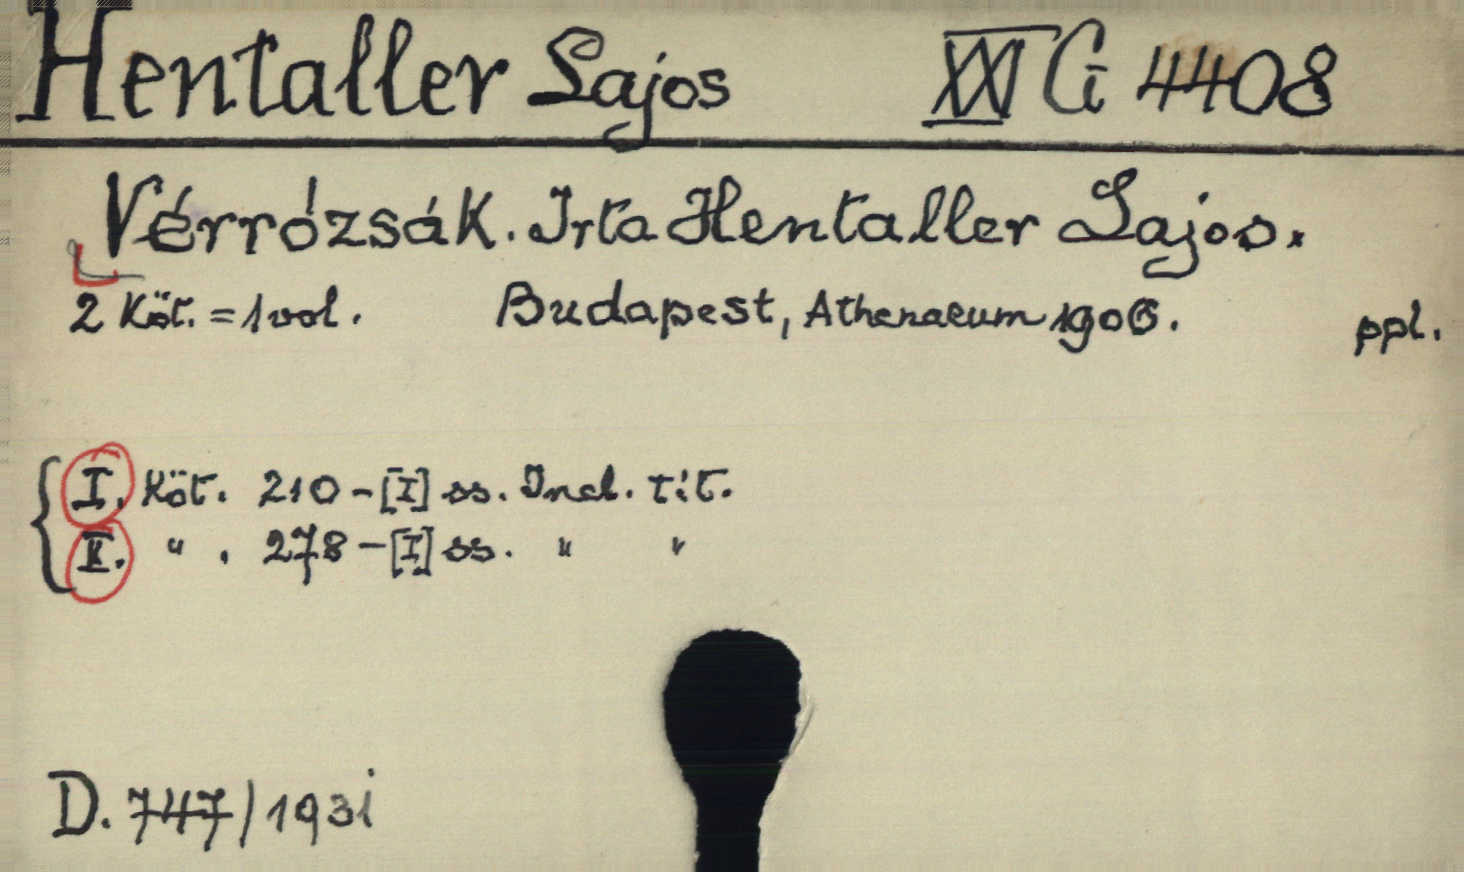 Hentaller Lajos XXI G 4408
Vérrózsák. Irta Hentaller Lajos.
2 Köt. = 1 vol. Budapest, Athenaeum 1906. ppl.
I. Köt. 210-[I] ss. Incl. tit.
II. " . 278-[I] ss. " "
D. 747/1931